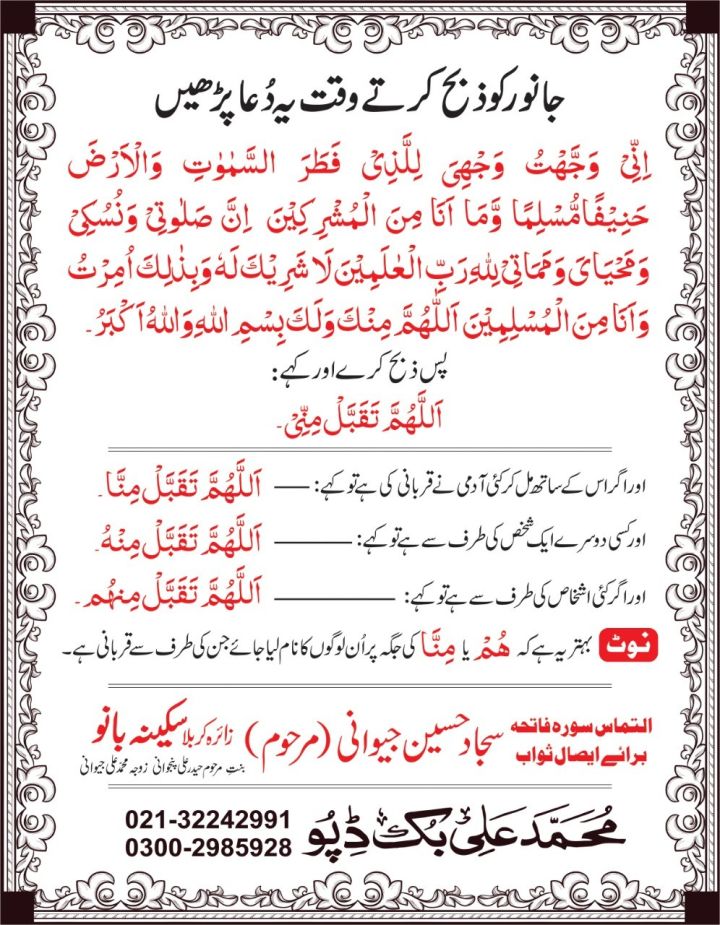 جانور کو ذبح کرتے وقت یہ دُعا پڑھیں
اِنِّیْ وَجَّهْتُ وَجْهِیَ لِلَّذِیْ فَطَرَ السَّمٰوٰتِ وَالْاَرْضَ
حَنِیْفًا مُّسْلِمًا وَّمَا اَنَا مِنَ الْمُشْرِكِیْنَ اِنَّ صَلٰوتِیْ وَنُسُكِیْ
وَمَحْیَایَ وَمَمَاتِیْ لِلّٰهِ رَبِّ الْعٰلَمِیْنَ لَا شَرِیْكَ لَهٗ وَبِذٰلِكَ اُمِرْتُ
وَاَنَا مِنَ الْمُسْلِمِیْنَ اَللّٰهُمَّ مِنْكَ وَلَكَ بِسْمِ اللهِ وَاللهُ اَكْبَرُ۔
پس ذبح کرے اور کہے:
اَللّٰهُمَّ تَقَبَّلْ مِنِّیْ۔
اور اگر اس کے ساتھ مل کر کئی آدمی نے قربانی کی ہے تو کہے: —— اَللّٰهُمَّ تَقَبَّلْ مِنَّا۔
اور کسی دوسرے ایک شخص کی طرف سے ہے تو کہے: ——— اَللّٰهُمَّ تَقَبَّلْ مِنْهُ۔
اور اگر کئی اشخاص کی طرف سے ہے تو کہے: ———— اَللّٰهُمَّ تَقَبَّلْ مِنهُم۔
نوٹ بہتر یہ ہے کہ هُمْ یا مِنَّا کی جگہ پر اُن لوگوں کا نام لیا جائے جن کی طرف سے قربانی ہے۔
التماس سورہ فاتحہ
برائے ایصال ثواب
سجاد حسین جیوانی (مرحوم)
زائرہ کربلا سکینہ بانو
بنتِ مرحوم حیدر علی پنجوانی زوجہ محمد علی جیوانی
مُحَمَّد عَلِی بُک ڈِپُو
021-32242991
0300-2985928